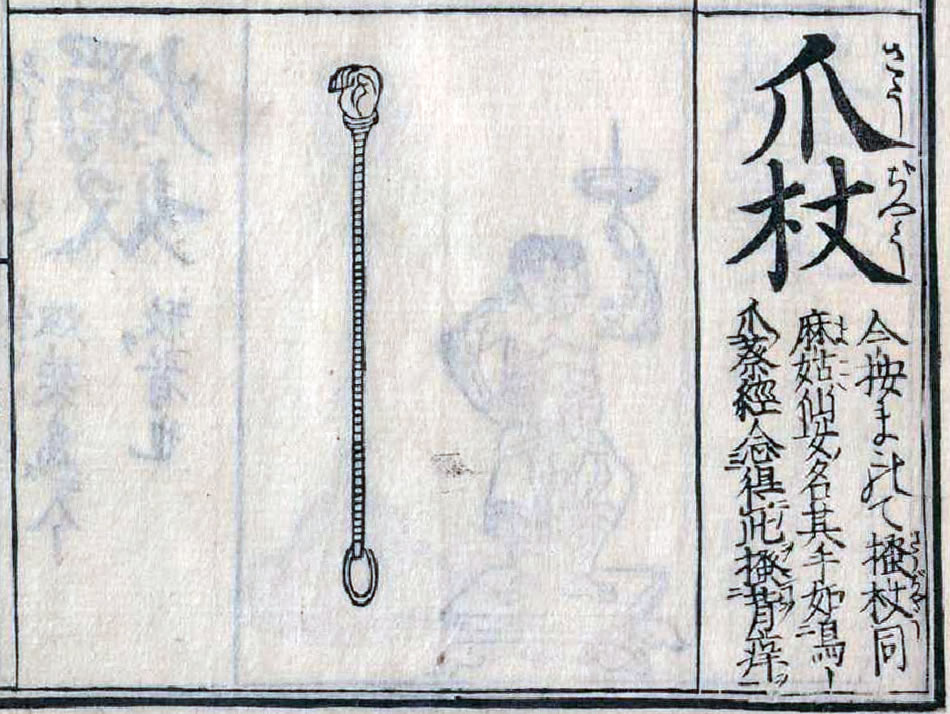 爪杖
さうぢやう
今按まごのて搔杖同
麻姑仙女名其手如鳥
爪蔡經念得此搔背痒